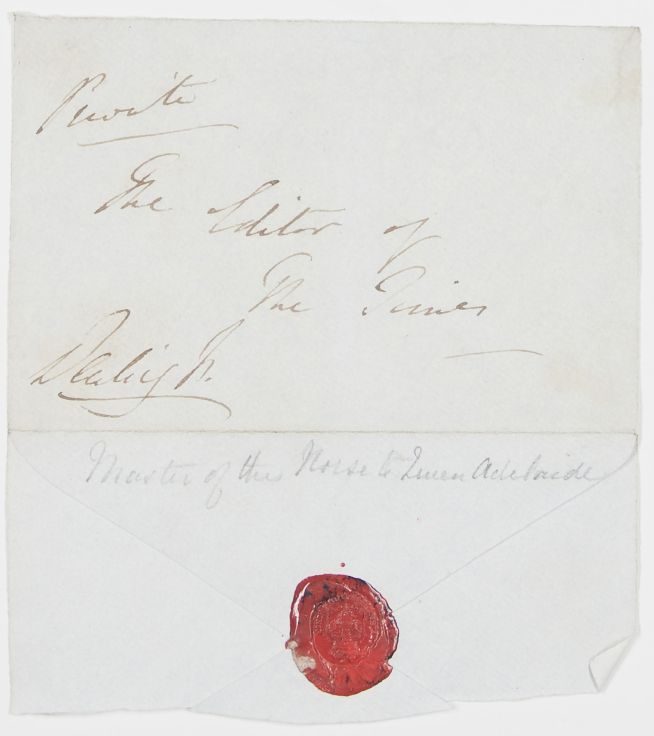 Private
The Editor of
The Times
Denbigh.
Master of the Horse to Queen Adelaide